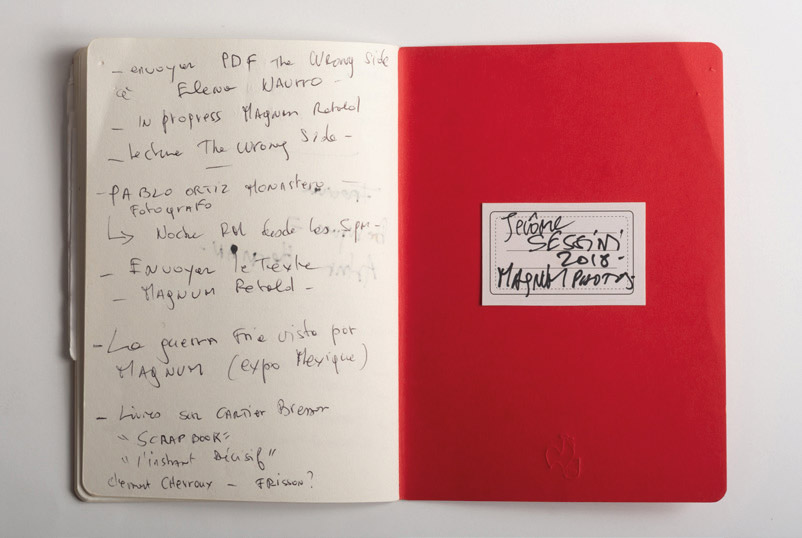 - envoyer PDF The Wrong Side
à Elena NAVVO -
- In progress Magnum Retold
- Lecture The Wrong Side -
- PABLO ORTIZ MONASTERIO -
Fotografo
↳ Noche desde las 5pm -
- Envoyer le Texte
- MAGNUM Retold -
- La guerra Fria vista por
MAGNUM (expo Mexique)
- Livres sur CARTIER Bresson
"SCRAPBOOK"
"l'instant Décisif"
Clément Chéroux - FRISSON?
Jérôme
SESSINI
2018 -
MAGNUM PHOTOS